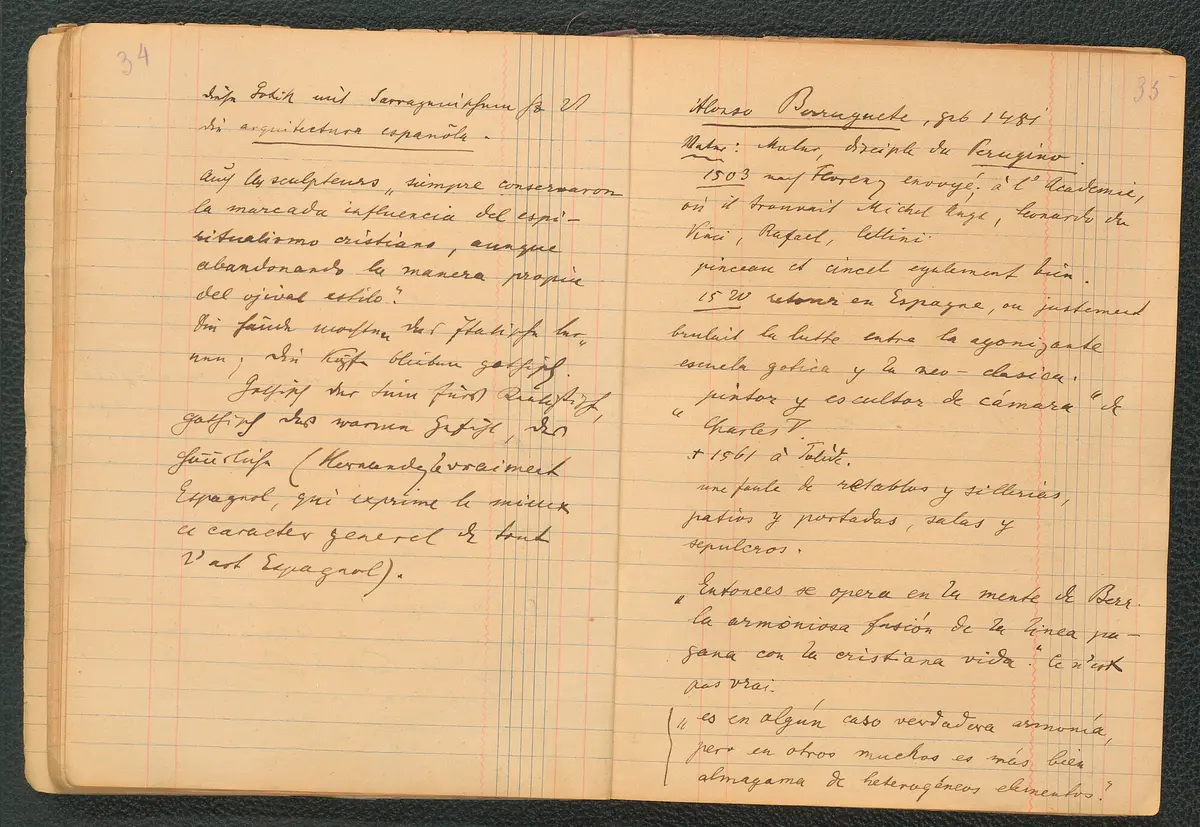 34
diese Gotik mit
die arquitectura española.
Auch les sculpteurs „siempre conservaron
la marcada influencia del espi-
ritualismo cristiano, aunque
abandonando la manera propia
del ojival estilo“.
Die Hände mochten das Italische ler-
nen; die Köpfe bleiben gothisch.
Gothisch der Sinn fürs Realistische,
gothisch das warme Gefühl, das
(Hernandez le vraiment
Espagnol, qui exprime le mieux
ce caracter general de tout
l'art Espagnol).
35
Alonso Berruguete, geb 1481
Vater: Maler, disciple du Perugino.
1503 nach Florenz envoyé; à l'Academie,
où il trouvait Michel Ange, Leonardo da
Vinci, Rafael, Cellini.
pinceau et cincel egalement bien.
1520 retour en Espagne, ou justement
brulait la lutte entre la agonizante
escuela gotica y la neo-clasica.
„pintor y escultor de cámara“ de
Charles V.
+ 1561 à Toledo.
une foule de retablos y sillerias,
patios y portadas, salas y
sepulcros.
„Entonces se opera en la mente de Berr.
la armoniosa fusión de la linea pa-
gana con la cristiana vida.“ Ce n'est
pas vrai.
„es en algún caso verdadera armonía,
pero en otros muchos es más bien
almagama de heterogéneos elementos.“